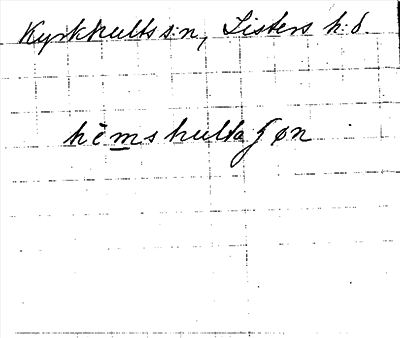 Kyrkhults s:n, Listers h:d.
hèmshultaʃøn